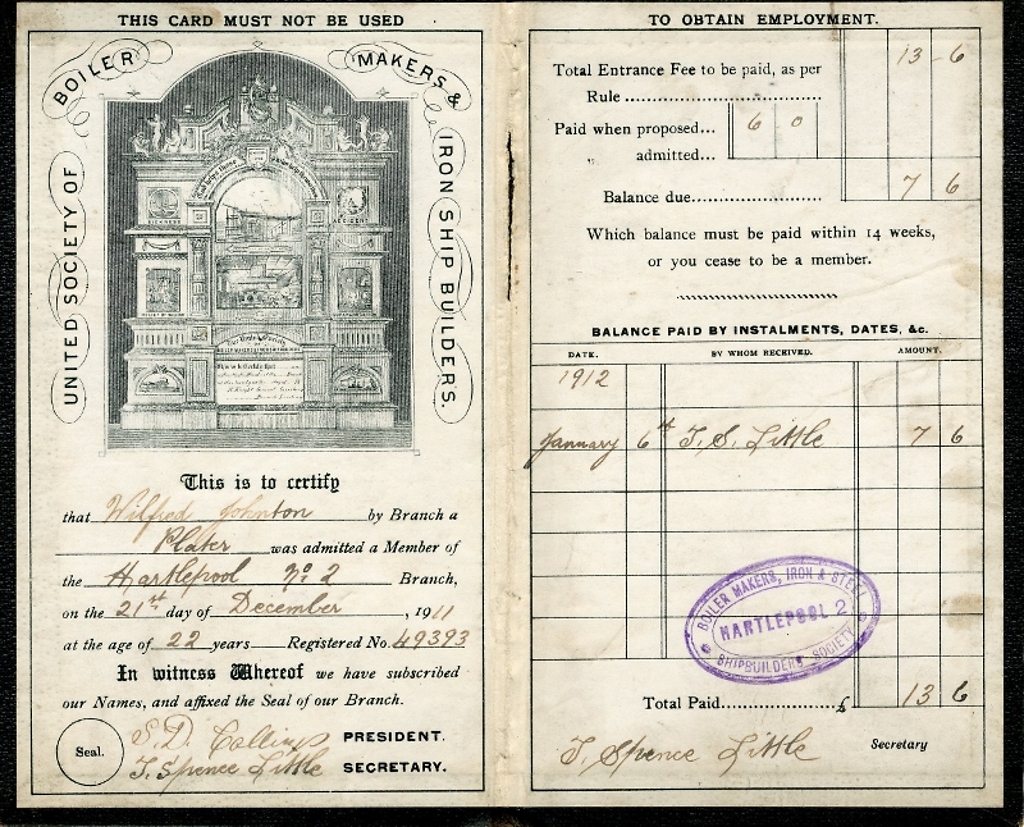 THIS CARD MUST NOT BE USED
UNITED SOCIETY OF BOILER MAKERS & IRON SHIP BUILDERS.
SICKNESS
ACCIDENT
This is to certify
that Wilfred Johnton by Branch a
Plater was admitted a Member of
the Hartlepool No. 2 Branch,
on the 21st day of December, 1911
at the age of 22 years Registered No. 49393
In witness Whereof we have subscribed
our Names, and affixed the Seal of our Branch.
Seal.
S. D. Collings PRESIDENT.
T. Spence Little SECRETARY.
TO OBTAIN EMPLOYMENT.
Total Entrance Fee to be paid, as per 13 - 6
Rule
Paid when proposed... 6 0
„ admitted...
Balance due 7 6
Which balance must be paid within 14 weeks,
or you cease to be a member.
BALANCE PAID BY INSTALMENTS, DATES, &c.
DATE. BY WHOM RECEIVED. AMOUNT.
1912
January 6th T. S. Little 7 6
BOILER MAKERS, IRON & STEEL
HARTLEPOOL 2
SHIPBUILDERS SOCIETY
Total Paid £ 13 6
T. Spence Little Secretary